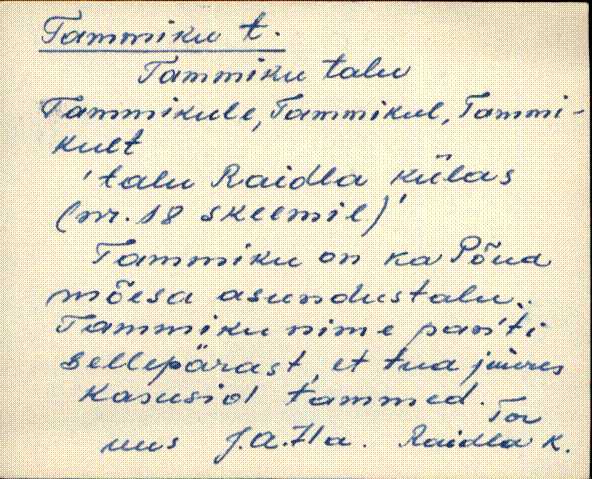 Tammiku t.
Tammiku talu
Tammikule, Tammikul, Tammi-
kult
'talu Raidla külas
(nr. 18 skeemil)'
Tammiku on ka Põud
mõesa asundustalu.
Tammiku nime pan'ti
sellepärast, et tua juures
kasusid tammed.
Tor
uus J.A. Raidla k.